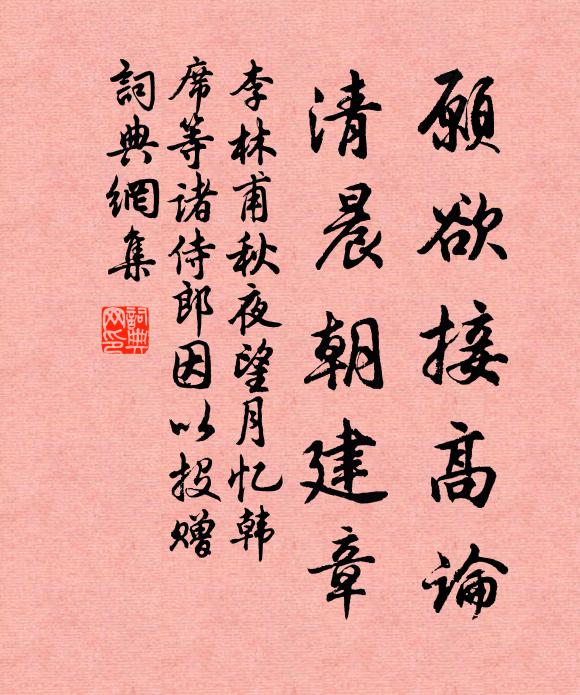 願欲接高論
清晨朝建章
李林甫秋夜望月忆韩
席等諸侍郎因以投贈
詞典網集
詞典
网印